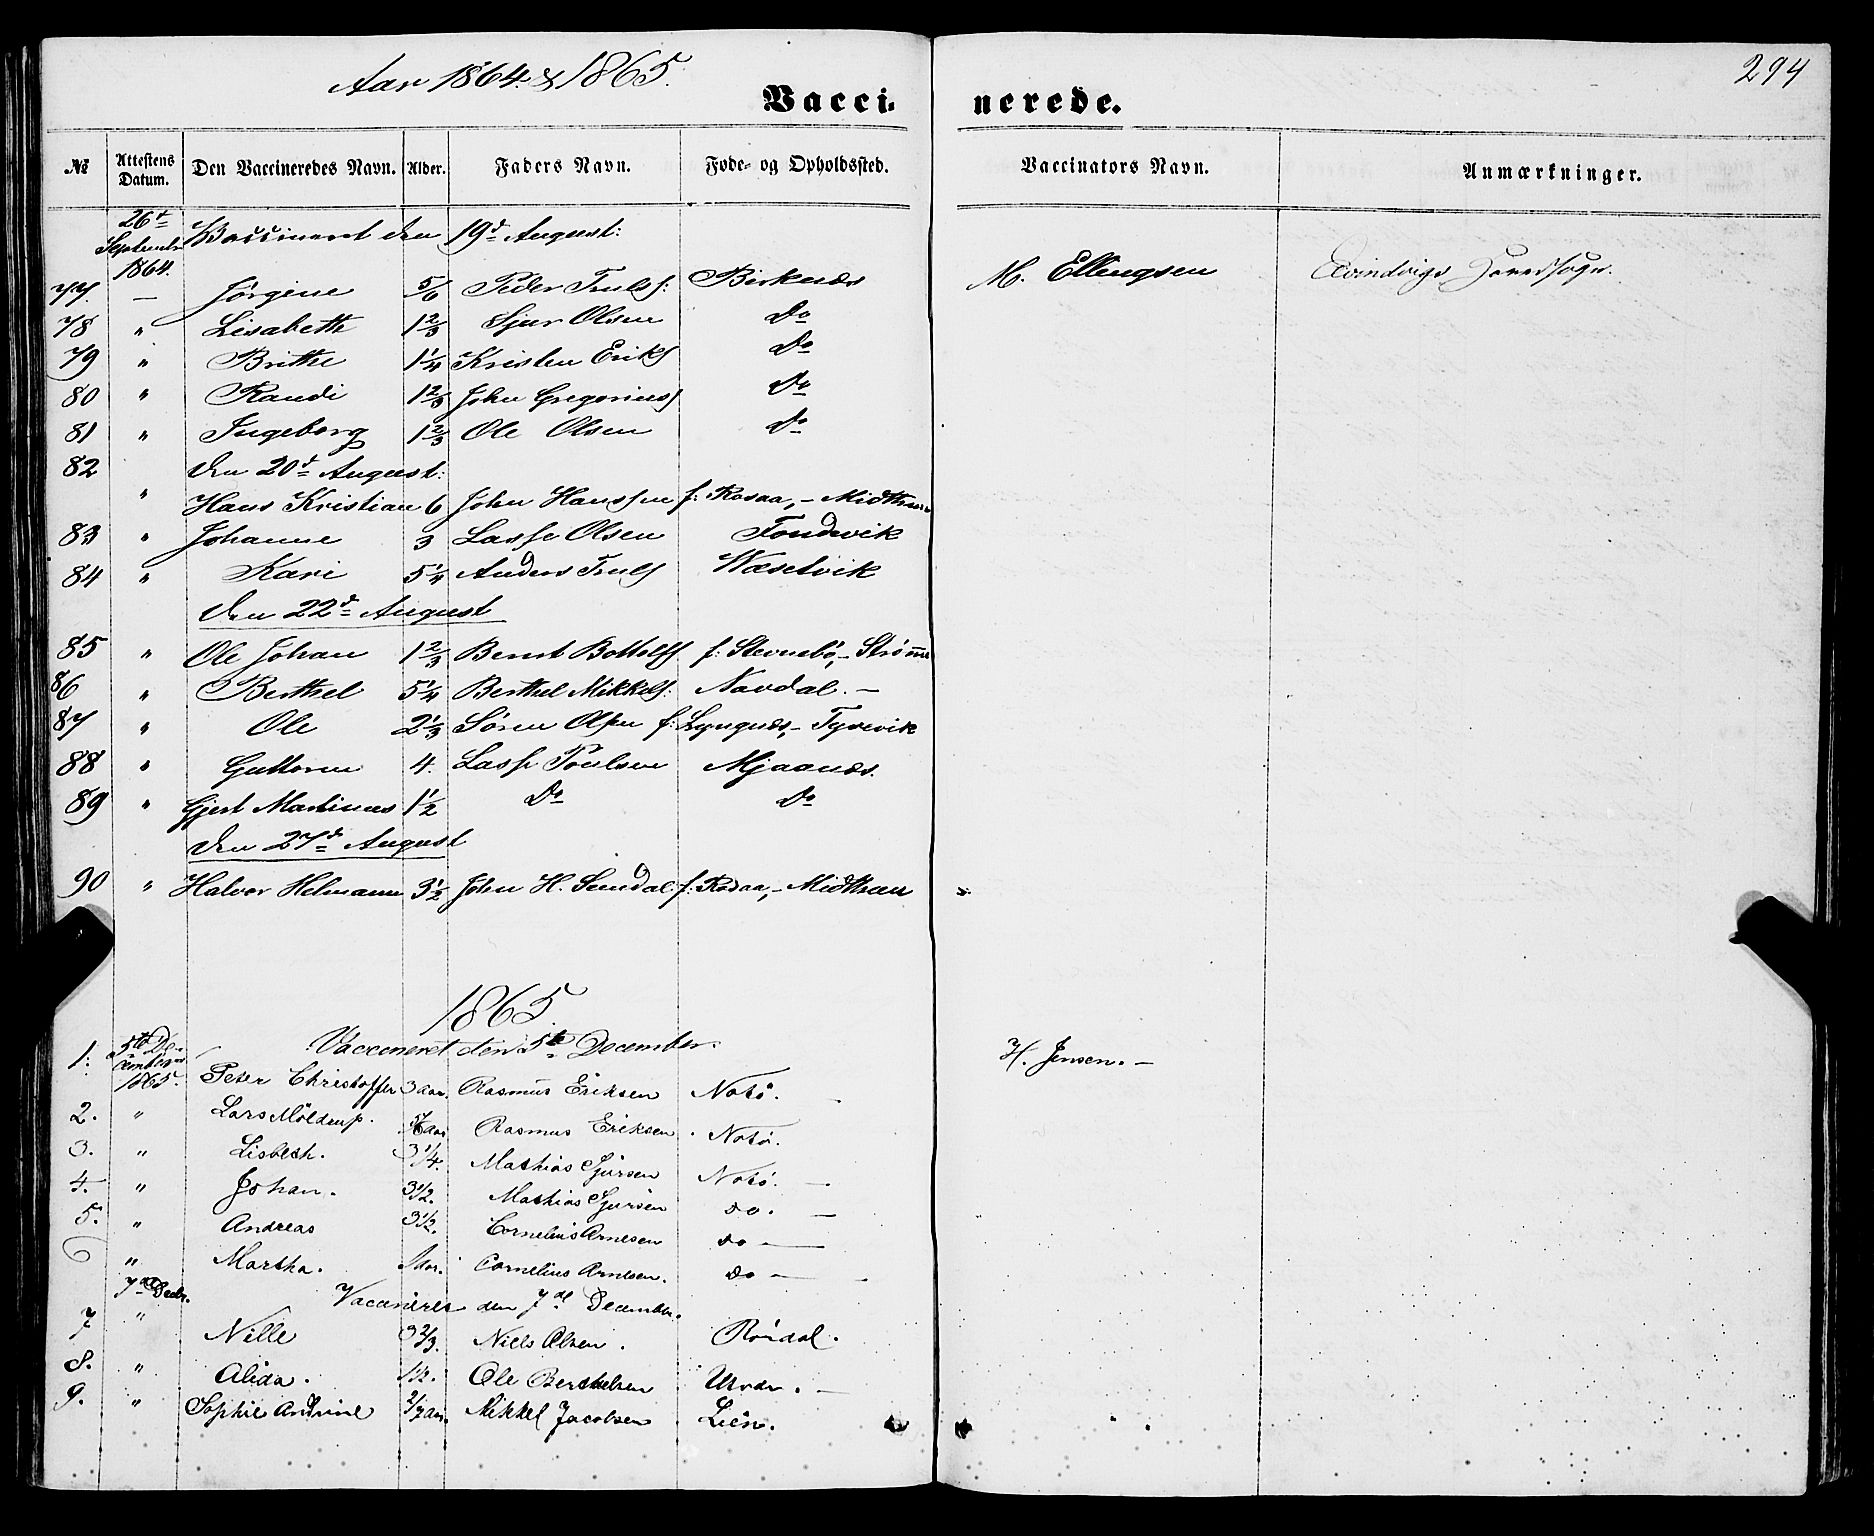 Aar 1864 & 1865.
294
Vacci- nerede.
№ Attestens Datum. Den Vaccineredes Navn. Alder. Faders Navn. Føde- og Opholdssted. Vaccinators Navn. Anmærkninger.
26d September 1864. Vaccineret den 19d August:
77. — Jørgine 5/6 Peder Trulss: Birknæs M. Ellengsen Evindvigs Hovedsogn.
78 " Lisabeth 1 2/3 Sjur Olsen Do
79 " Brithe 1 1/4 Kristen Eriks Do
80 " Randi 1 2/3 John Gregorius Do
81 " Ingeborg 1 2/3 Ole Olsen Do
82 den 20d August:
" Hans Kristian 6 John Hanssen f: Risaa, - Midthun
83 " Johanne 3 Lasse Olsen Tondevik
84 " Kari 5 1/4 Anders Truls Wæsetvik
den 22d August
85 " Ole Johan 1 2/3 Bernt Bottolfs f: Stevnebø, - Strømme
86 " Berthel 5 1/4 Berthel Mikkels: Navdal. —
87 " Ole 2 1/3 Søren Olsen f: Lyngnæs, - Tyvevik
88 " Guttorm 4. Lasse Poulsen Mjaanæs.
89 " Gjert Martinus 1 1/2 Do Do
den 27d August
90 " Halvor Helmann 3 1/2 John H. Sundal f: Risaa, - Midthun "
1865
1: 5te December 1865. Vaccineret den 5te December. H. Jensen. —
Peter Christoffer 3 aar. Rasmus Eriksen Notø.
2. " Lars Möldrup. aar Rasmus Eriksen. Notø.
3. " Lisbeth. 3 1/4. Mathias Sjursen Notø. —
4. " Johan. 3 1/2. Mathias Sjursen do. —
5. " Andreas 3 1/2. Cornelius Arnesen do —
6 " Martha. 1 aar. Cornelius Arnesen. do —
7de Decbr. Vaccineret den 7de December.
7 " Nille 3 2/3. Niels Olsen. Risdal.
8. " Alida. 1 1/2. Ole Berthelsen —
9. " Sophie Andrine aar. Mikkel Jacobsen Lien.